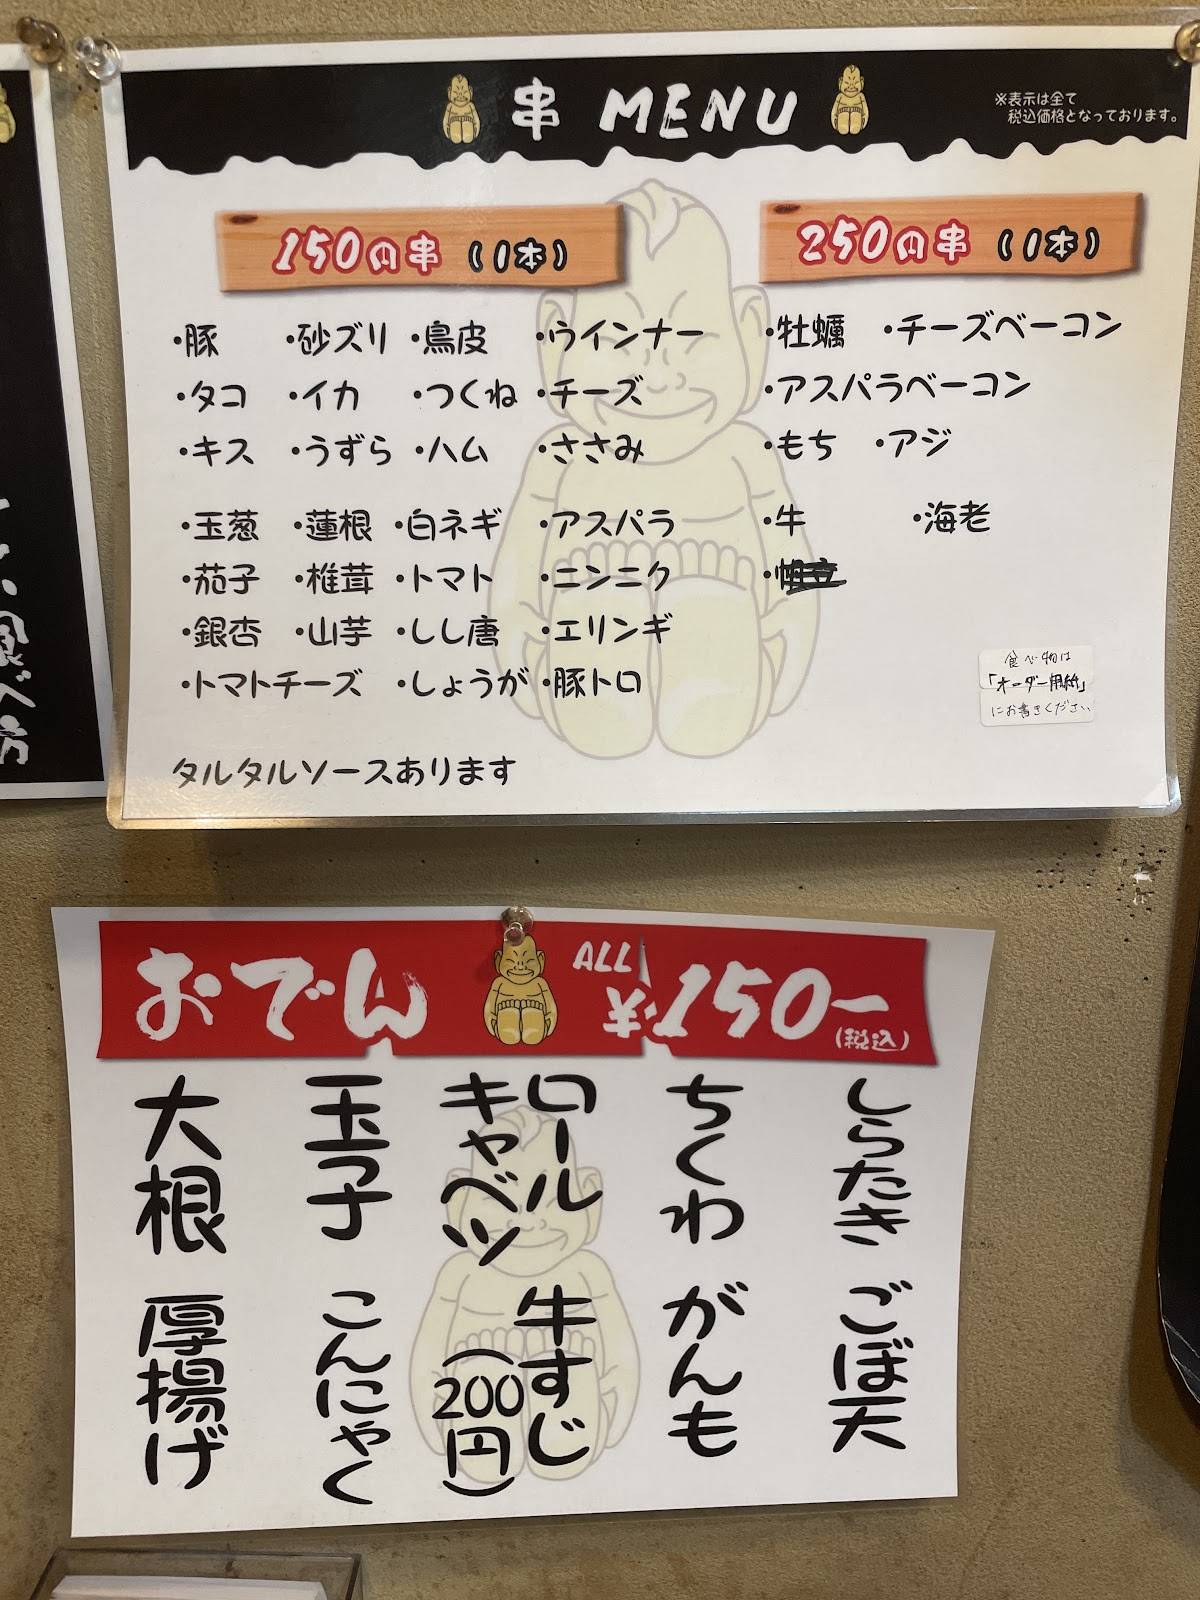 串 MENU
※表示は全て
税込価格となっております。
150円串（1本）
・豚 ・砂ズリ ・鳥皮 ・ウインナー
・タコ ・イカ ・つくね ・チーズ
・キス ・うずら ・ハム ・ささみ
・玉葱 ・蓮根 ・白ネギ ・アスパラ
・茄子 ・椎茸 ・トマト ・ニンニク
・銀杏 ・山芋 ・しし唐 ・エリンギ
・トマトチーズ ・しょうが ・豚トロ
タルタルソースあります
250円串（1本）
・牡蠣 ・チーズベーコン
・アスパラベーコン
・もち ・アジ
・牛 ・海老
・帆立
食べ物は
「オーダー用紙」
にお書きください
い
食べ方
おでん
ALL
¥150ー
(税込)
大根
玉子
ロール
キャベツ
ちくわ
しらたき
厚揚げ
こんにゃく
牛すじ
（200円）
がんも
ごぼ天